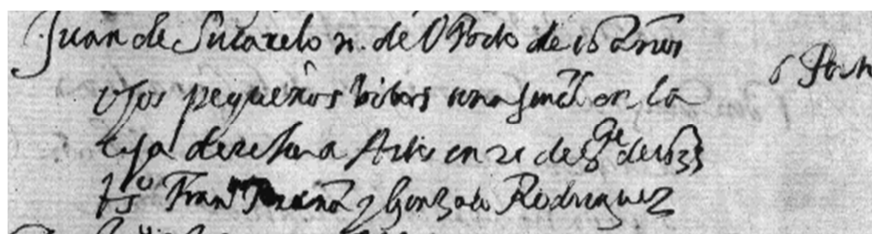 Juan de Sucarelo n. de OPorto de 16 años
ojos pequeños bibos una señal en la
ceja derecha Artis en 21 de 8re de 1635
ts° Fran^co y Gonzalo Rodriguez